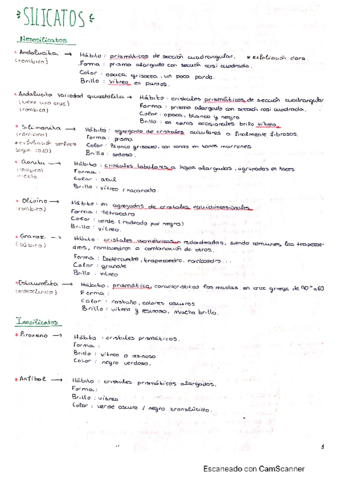 SILICATOS
Nesosilicatos
• Andalucita → Hábito: prismáticos de sección cuadrangular, * exfoliación clara
(rómbica) Forma: prisma alargado con sección casi cuadrada.
Color: opaca, grisácea, un poco parda.
Brillo: vítreo en puntos.
• Andalucita variedad quiastolita → Hábito: cristales prismáticos de sección cuadrangular
(tiene una cruz) Forma: prisma alargado con sección casi cuadrada.
(rómbica) Color: opaca, blanco y negro
Brillo: en zonas ocasionales brillo vítreo.
• Sillimanita → Hábito: agregados de cristales aciculares o finalmente fibrosos.
(rómbica) Forma: prisma
* exfoliación perfecta Color: blanco grisáceo, con zonas en tonos marrones.
según (010) Brillo: sedoso.
• Cianita → Hábito: cristales tabulares a hojas alargados, agrupados en haces
Forma:
Color: azul
Brillo: vítreo / nacarado.
• Olivino → Hábito: en agregados de cristales equidimensionales
(rómbico) Forma: tetraedro
Color: verde (rodeado por negro)
Brillo: vítreo.
• Granate → Hábito: cristales isométricos redondeados, siendo comunes los trapezoe-
(cúbico) dros, rombododecaedros o combinación de estos.
Forma: Dodecaedro, trapezoedro,
Color: granate
Brillo: vítreo
• Estaurolita → Hábito: prismática, característicos las maclas en cruz griega de 90° o 60
(monoclínico) Forma:
Color: castaño, colores oscuros
Brillo: vítreo y resinoso, mucho brillo.
Inosilicatos
• Piroxeno → Hábito: cristales prismáticos.
Forma:
Brillo: vítreo o resinoso
Color: negro verdoso.
• Anfíbol → Hábito: cristales prismáticos alargados.
Forma:
Brillo: vítreo
Color: verde oscuro / negro translúcido.
Escaneado con CamScanner